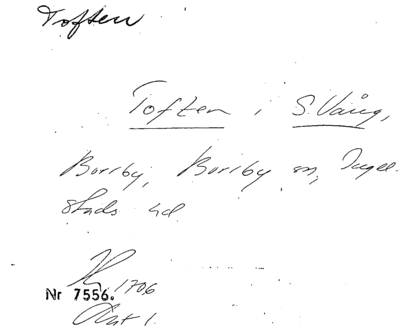 Toften
Toften i S. Vång,
Borrby, Borrby sn, Ingel-
stads hd
1706
Nr 7556.
Akt 1.